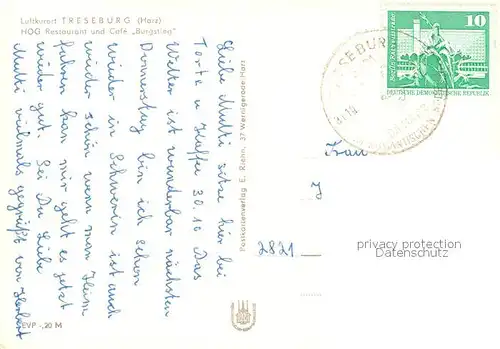 Luftkurort TRESEBURG (Harz)
HOG Restaurant und Café „Burgstieg"
Liebe Mutti sitze hier bei
Torte u Kaffe 30.10 Das
Wetter ist wunderbar nächsten
Donnerstag bin ich schon
wieder in Schwerin ist auch
wieder schön wenn man Heim
fahren kan mir geht es jetzt
wieder gut. Sei Du Liebe
Mutti vielmals gegrüßt von Herbert
Postkartenverlag E. Riehn, 37 Wernigerode-Harz
EVP -,20 M
TRESEBURG
10
DEUTSCHE DEMOKRATISCHE REPUBLIK
Frau
2821
privacy protection
Datenschutz